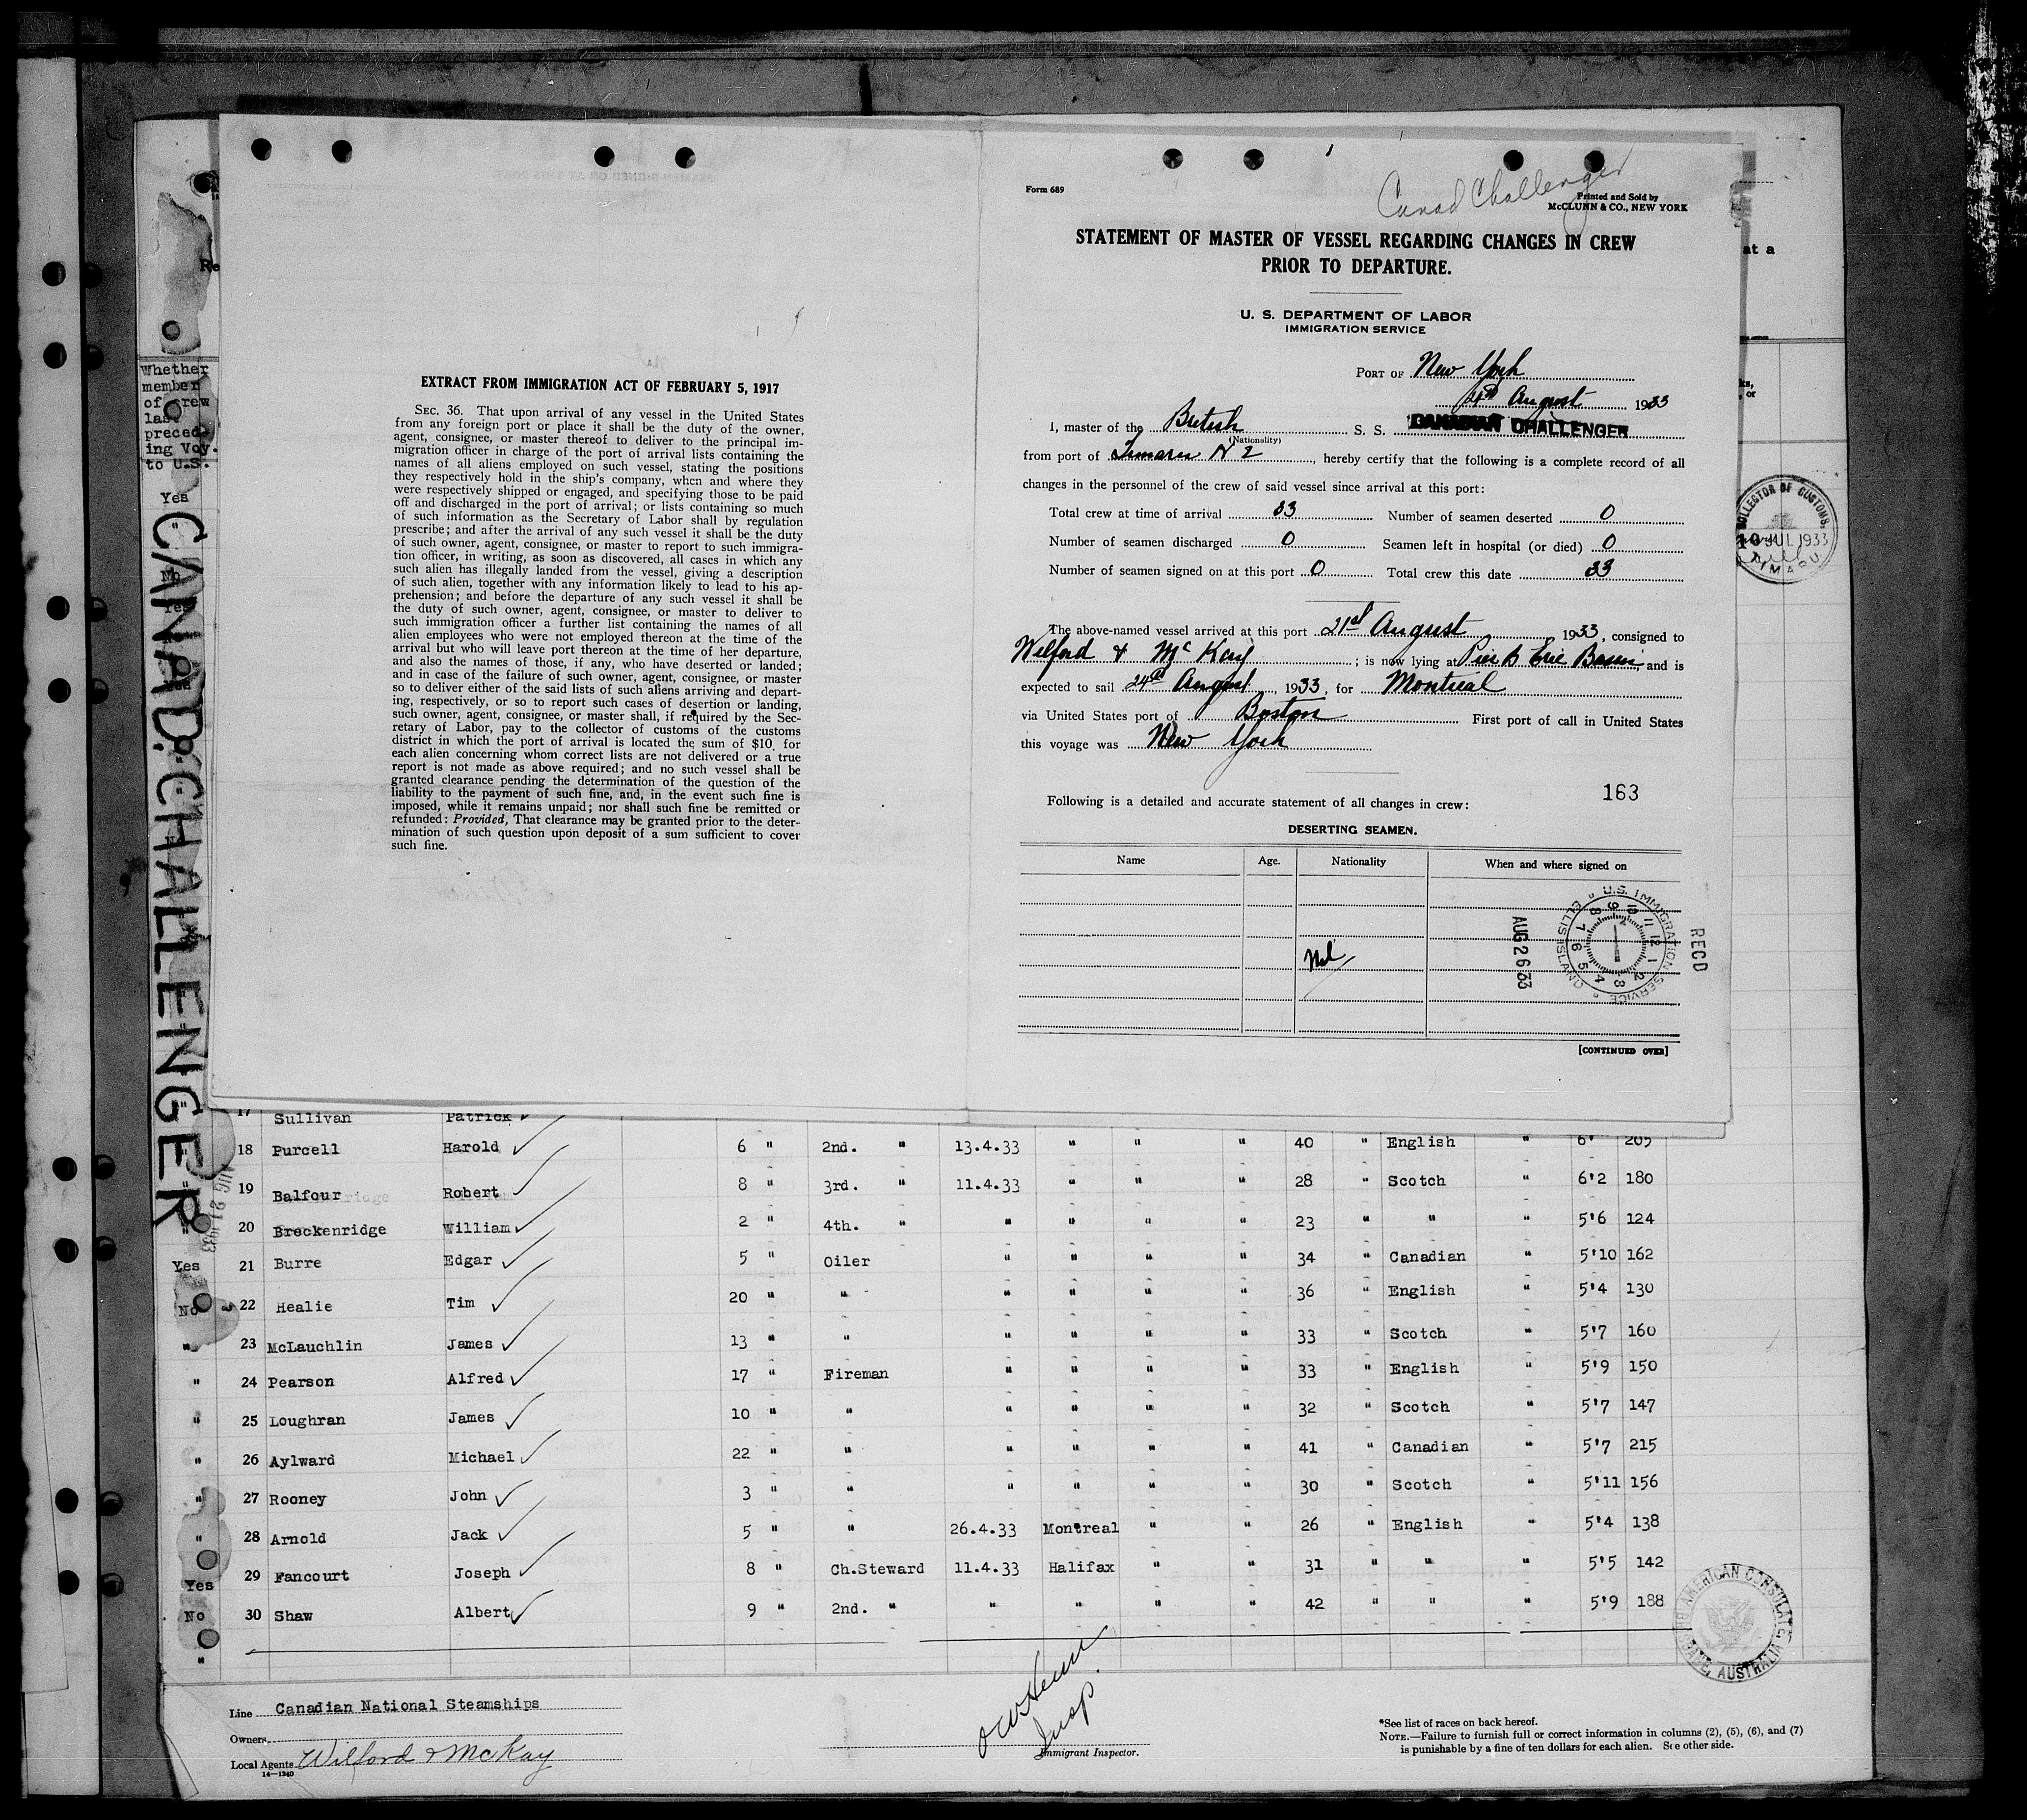 EXTRACT FROM IMMIGRATION ACT OF FEBRUARY 5, 1917
SEC. 36. That upon arrival of any vessel in the United States
from any foreign port or place it shall be the duty of the owner,
agent, consignee, or master thereof to deliver to the principal im-
migration officer in charge of the port of arrival lists containing the
names of all aliens employed on such vessel, stating the positions
they respectively hold in the ship's company, when and where they
were respectively shipped or engaged, and specifying those to be paid
off and discharged in the port of arrival; or lists containing so much
of such information as the Secretary of Labor shall by regulation
prescribe; and after the arrival of any such vessel it shall be the duty
of such owner, agent, consignee, or master to report to such immigra-
tion officer, in writing, as soon as discovered, all cases in which any
such alien has illegally landed from the vessel, giving a description
of such alien, together with any information likely to lead to his ap-
prehension; and before the departure of any such vessel it shall be
the duty of such owner, agent, consignee, or master to deliver to
such immigration officer a further list containing the names of all
alien employees who were not employed thereon at the time of the
arrival but who will leave port thereon at the time of her departure,
and also the names of those, if any, who have deserted or landed;
and in case of the failure of such owner, agent, consignee, or master
so to deliver either of the said lists of such aliens arriving and depart-
ing, respectively, or so to report such cases of desertion or landing,
such owner, agent, consignee, or master shall, if required by the Sec-
retary of Labor, pay to the collector of customs of the customs
district in which the port of arrival is located the sum of $10 for
each alien concerning whom correct lists are not delivered or a true
report is not made as above required; and no such vessel shall be
granted clearance pending the determination of the question of the
liability to the payment of such fine, and, in the event such fine is
imposed, while it remains unpaid; nor shall such fine be remitted or
refunded: Provided, That clearance may be granted prior to the deter-
mination of such question upon deposit of a sum sufficient to cover
such fine.
Form 689
Canad Challenger
Printed and Sold by
McCLUNN & CO., NEW YORK
STATEMENT OF MASTER OF VESSEL REGARDING CHANGES IN CREW
PRIOR TO DEPARTURE.
U. S. DEPARTMENT OF LABOR
IMMIGRATION SERVICE
PORT OF New York
August 1933
I, master of the British S. S. CANADIAN CHALLENGER
(Nationality)
from port of Timaru N Z, hereby certify that the following is a complete record of all
changes in the personnel of the crew of said vessel since arrival at this port:
Total crew at time of arrival 33 Number of seamen deserted 0
Number of seamen discharged 0 Seamen left in hospital (or died) 0
Number of seamen signed on at this port 0 Total crew this date 33
The above-named vessel arrived at this port 21st August 1933, consigned to
Wilford & McKay; is now lying at Pier B Erie Basin and is
expected to sail 24th August, 1933, for Montreal
via United States port of Boston First port of call in United States
this voyage was New York
163
Following is a detailed and accurate statement of all changes in crew:
DESERTING SEAMEN.
Name Age. Nationality When and where signed on
Nil
U.S. IMMIGRATION SERVICE ELLIS ISLAND
AUG 26 33
RECD
[CONTINUED OVER]
Re
at a
Whether
member
of crew
last
preced-
ing Voy.
to U.S.
Yes
CANAD: CHALLENGER
COLLECTOR OF CUSTOMS,
10 JUL 1933
TIMARU
17 Sullivan Patrick
18 Purcell Harold 6 " 2nd. " 13.4.33 " " " 40 " English " 6' 205
19 Balfour Robert 8 " 3rd. " 11.4.33 " " " 28 " Scotch " 6'2 180
20 Breckenridge William 2 " 4th. " " " " " 23 " " " 5'6 124
Yes 21 Burre Edgar 5 " Oiler " " " " 34 " Canadian " 5'10 162
No 22 Healie Tim 20 " " " " " " 36 " English " 5'4 130
" 23 McLauchlin James 13 " " " " " " 33 " Scotch " 5'7 160
" 24 Pearson Alfred 17 " Fireman " " " " 33 " English " 5'9 150
" 25 Loughran James 10 " " " " " " 32 " Scotch " 5'7 147
" 26 Aylward Michael 22 " " " " " " 41 " Canadian " 5'7 215
" 27 Rooney John 3 " " " " " " 30 " Scotch " 5'11 156
" 28 Arnold Jack 5 " " 26.4.33 Montreal " " 26 " English " 5'4 138
Yes 29 Fancourt Joseph 8 " Ch.Steward 11.4.33 Halifax " " 31 " " " 5'5 142
No 30 Shaw Albert 9 " 2nd. " " " " " 42 " " " 5'9 188
"
AUG 21 1933
AMERICAN CONSULATE
AUSTRALIA
Line Canadian National Steamships
Owners
Local Agents Wilford & McKay
14—1240
Insp.
Immigrant Inspector.
*See list of races on back hereof.
NOTE.—Failure to furnish full or correct information in columns (2), (5), (6), and (7)
is punishable by a fine of ten dollars for each alien. See other side.